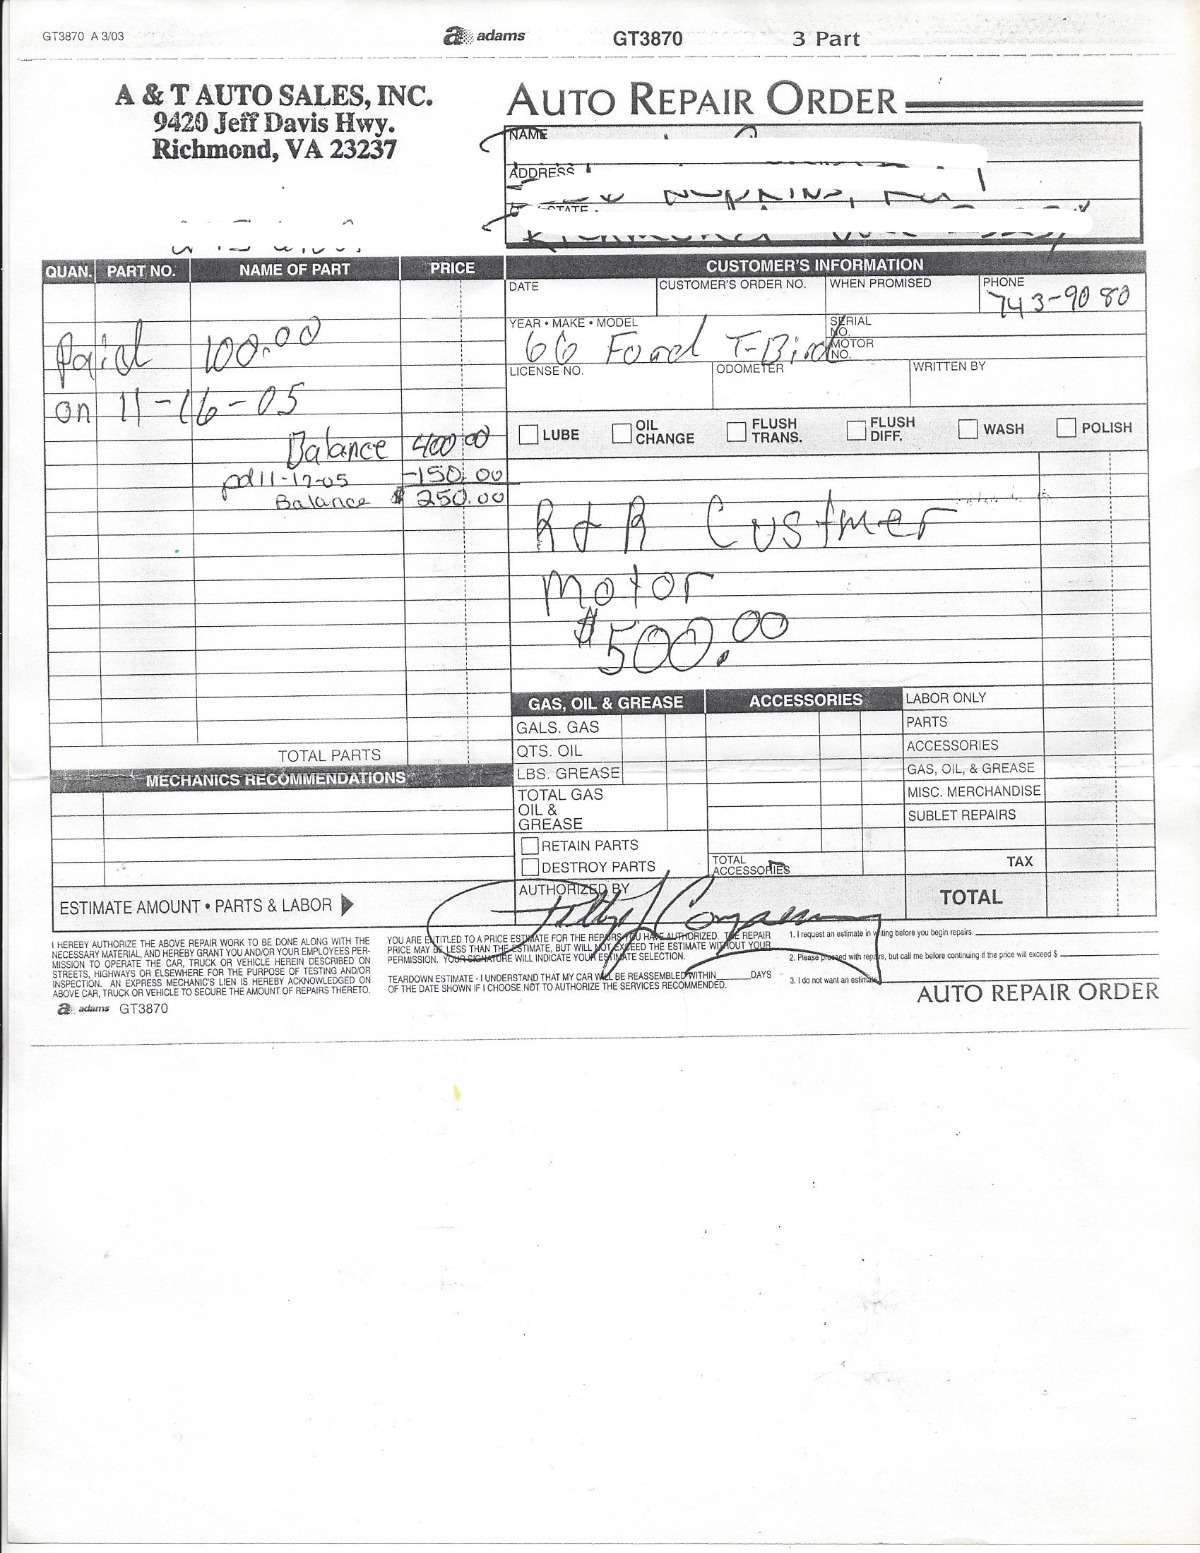 GT3870 A 3/03
adams
GT3870
3 Part
A & T AUTO SALES, INC.
9420 Jeff Davis Hwy.
Richmond, VA 23237
AUTO REPAIR ORDER
NAME
ADDRESS
STATE
QUAN. PART NO. NAME OF PART PRICE
CUSTOMER'S INFORMATION
DATE CUSTOMER'S ORDER NO. WHEN PROMISED PHONE
743-9080
YEAR • MAKE • MODEL SERIAL NO.
66 Ford T-Bird
MOTOR NO.
LICENSE NO. ODOMETER WRITTEN BY
Paid 100.00
on 11-16-05
Balance 400.00
pd 11-17-05 -150.00
Balance $ 250.00
LUBE OIL CHANGE FLUSH TRANS. FLUSH DIFF. WASH POLISH
R & R Custmer
motor
$500.00
TOTAL PARTS
MECHANICS RECOMMENDATIONS
ESTIMATE AMOUNT • PARTS & LABOR
GAS, OIL & GREASE
GALS. GAS
QTS. OIL
LBS. GREASE
TOTAL GAS
OIL &
GREASE
RETAIN PARTS
DESTROY PARTS
AUTHORIZED BY
ACCESSORIES
TOTAL
ACCESSORIES
LABOR ONLY
PARTS
ACCESSORIES
GAS, OIL, & GREASE
MISC. MERCHANDISE
SUBLET REPAIRS
TAX
TOTAL
I HEREBY AUTHORIZE THE ABOVE REPAIR WORK TO BE DONE ALONG WITH THE
NECESSARY MATERIAL, AND HEREBY GRANT YOU AND/OR YOUR EMPLOYEES PER-
MISSION TO OPERATE THE CAR, TRUCK OR VEHICLE HEREIN DESCRIBED ON
STREETS, HIGHWAYS OR ELSEWHERE FOR THE PURPOSE OF TESTING AND/OR
INSPECTION. AN EXPRESS MECHANIC'S LIEN IS HEREBY ACKNOWLEDGED ON
ABOVE CAR, TRUCK OR VEHICLE TO SECURE THE AMOUNT OF REPAIRS THERETO.
adams GT3870
YOU ARE ENTITLED TO A PRICE ESTIMATE FOR THE REPAIRS YOU HAVE AUTHORIZED. THE REPAIR
PRICE MAY BE LESS THAN THE ESTIMATE, BUT WILL NOT EXCEED THE ESTIMATE WITHOUT YOUR
PERMISSION. YOUR SIGNATURE WILL INDICATE YOUR ESTIMATE SELECTION.
TEARDOWN ESTIMATE - I UNDERSTAND THAT MY CAR WILL BE REASSEMBLED WITHIN DAYS
OF THE DATE SHOWN IF I CHOOSE NOT TO AUTHORIZE THE SERVICES RECOMMENDED.
1. I request an estimate in writing before you begin repairs.
2. Please proceed with repairs, but call me before continuing if the price will exceed $
3. I do not want an estimate
AUTO REPAIR ORDER